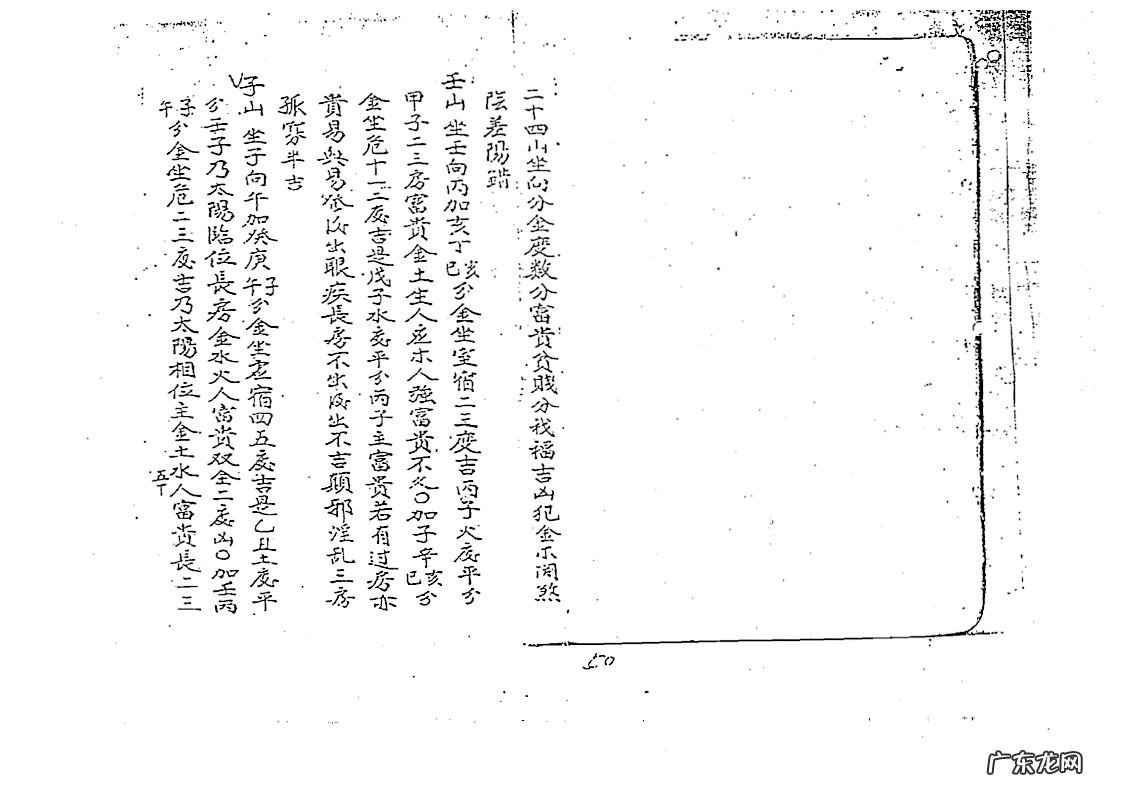 二十四山坐向分金度数分富贵贫賤分我福吉凶犯金木闲煞
陰差陽錯
壬山 坐壬向丙加亥丁亥巳分金坐室宿二三度吉丙子火度平分
甲子二三房富貴金土生人应木人強富贵不久〇加子辛亥巳分
金坐危十一二度吉是戊子水度平分丙子主富贵若有过房亦
貴易兴易败后出眼疾長房不出后出不吉顛邪淫乱三房
孤寡半吉
子山 坐子向午加癸庚子午分金坐虚宿四五度吉是乙丑土度平
分壬子乃太陽臨位長房金水火人富貴双全二度凶〇加壬丙
子午分金坐危二三度吉乃太陽相位主金土水人富贵長二三
五丁
50
50
广东龙网